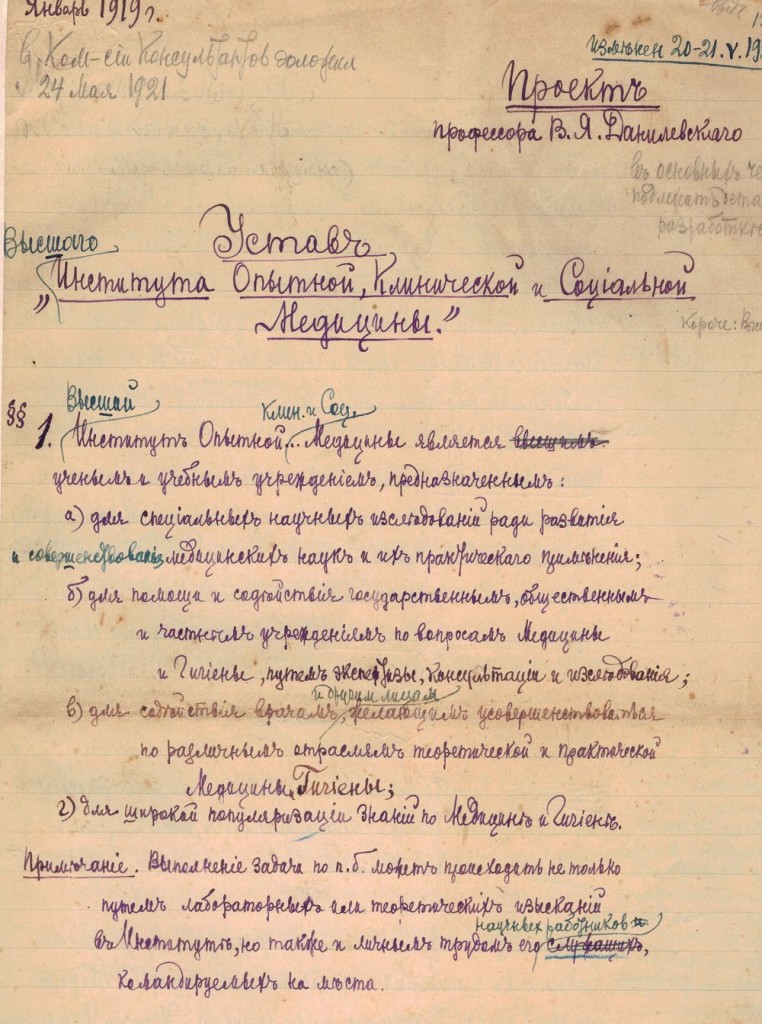 Январь 1919 г.
измѣнен 20-21. V. 19
в Ком-сии Консультантов доложил
24 Мая 1921
Проектъ
профессора В. Я. Данилевскаго
въ основныхъ
подлежатъ
разработкѣ
Высшаго
Уставъ
„Института Опытной, Клинической и Соціальной
Медицины.“
Короче:
Высшій
Клин. и Соц.
§§ 1. Институтъ Опытной... Медицины является высшимъ
ученымъ и учебнымъ учрежденіемъ, предназначеннымъ:
а) для спеціальныхъ научныхъ изслѣдованій ради развитія
и совершенствованія медицинскихъ наукъ и ихъ практическаго примѣненія;
б) для помощи и содѣйствія государственнымъ, общественнымъ
и частнымъ учрежденіямъ по вопросамъ Медицины
и Гигіены, путемъ экспертизы, консультаціи и изслѣдованія;
и другим лицам
в) для содѣйствія врачамъ, желающимъ усовершенствоваться
по различнымъ отраслямъ теоретической и практической
Медицины, Гигіены;
г) для широкой популяризаціи знаній по Медицинѣ и Гигіенѣ.
Примѣчаніе. Выполненіе задачи по п. б. можетъ происходить не только
путемъ лабораторныхъ или теоретическихъ изысканій
научных работников
въ Институтѣ, но также и личнымъ трудомъ его служащихъ,
командируемыхъ на мѣста.